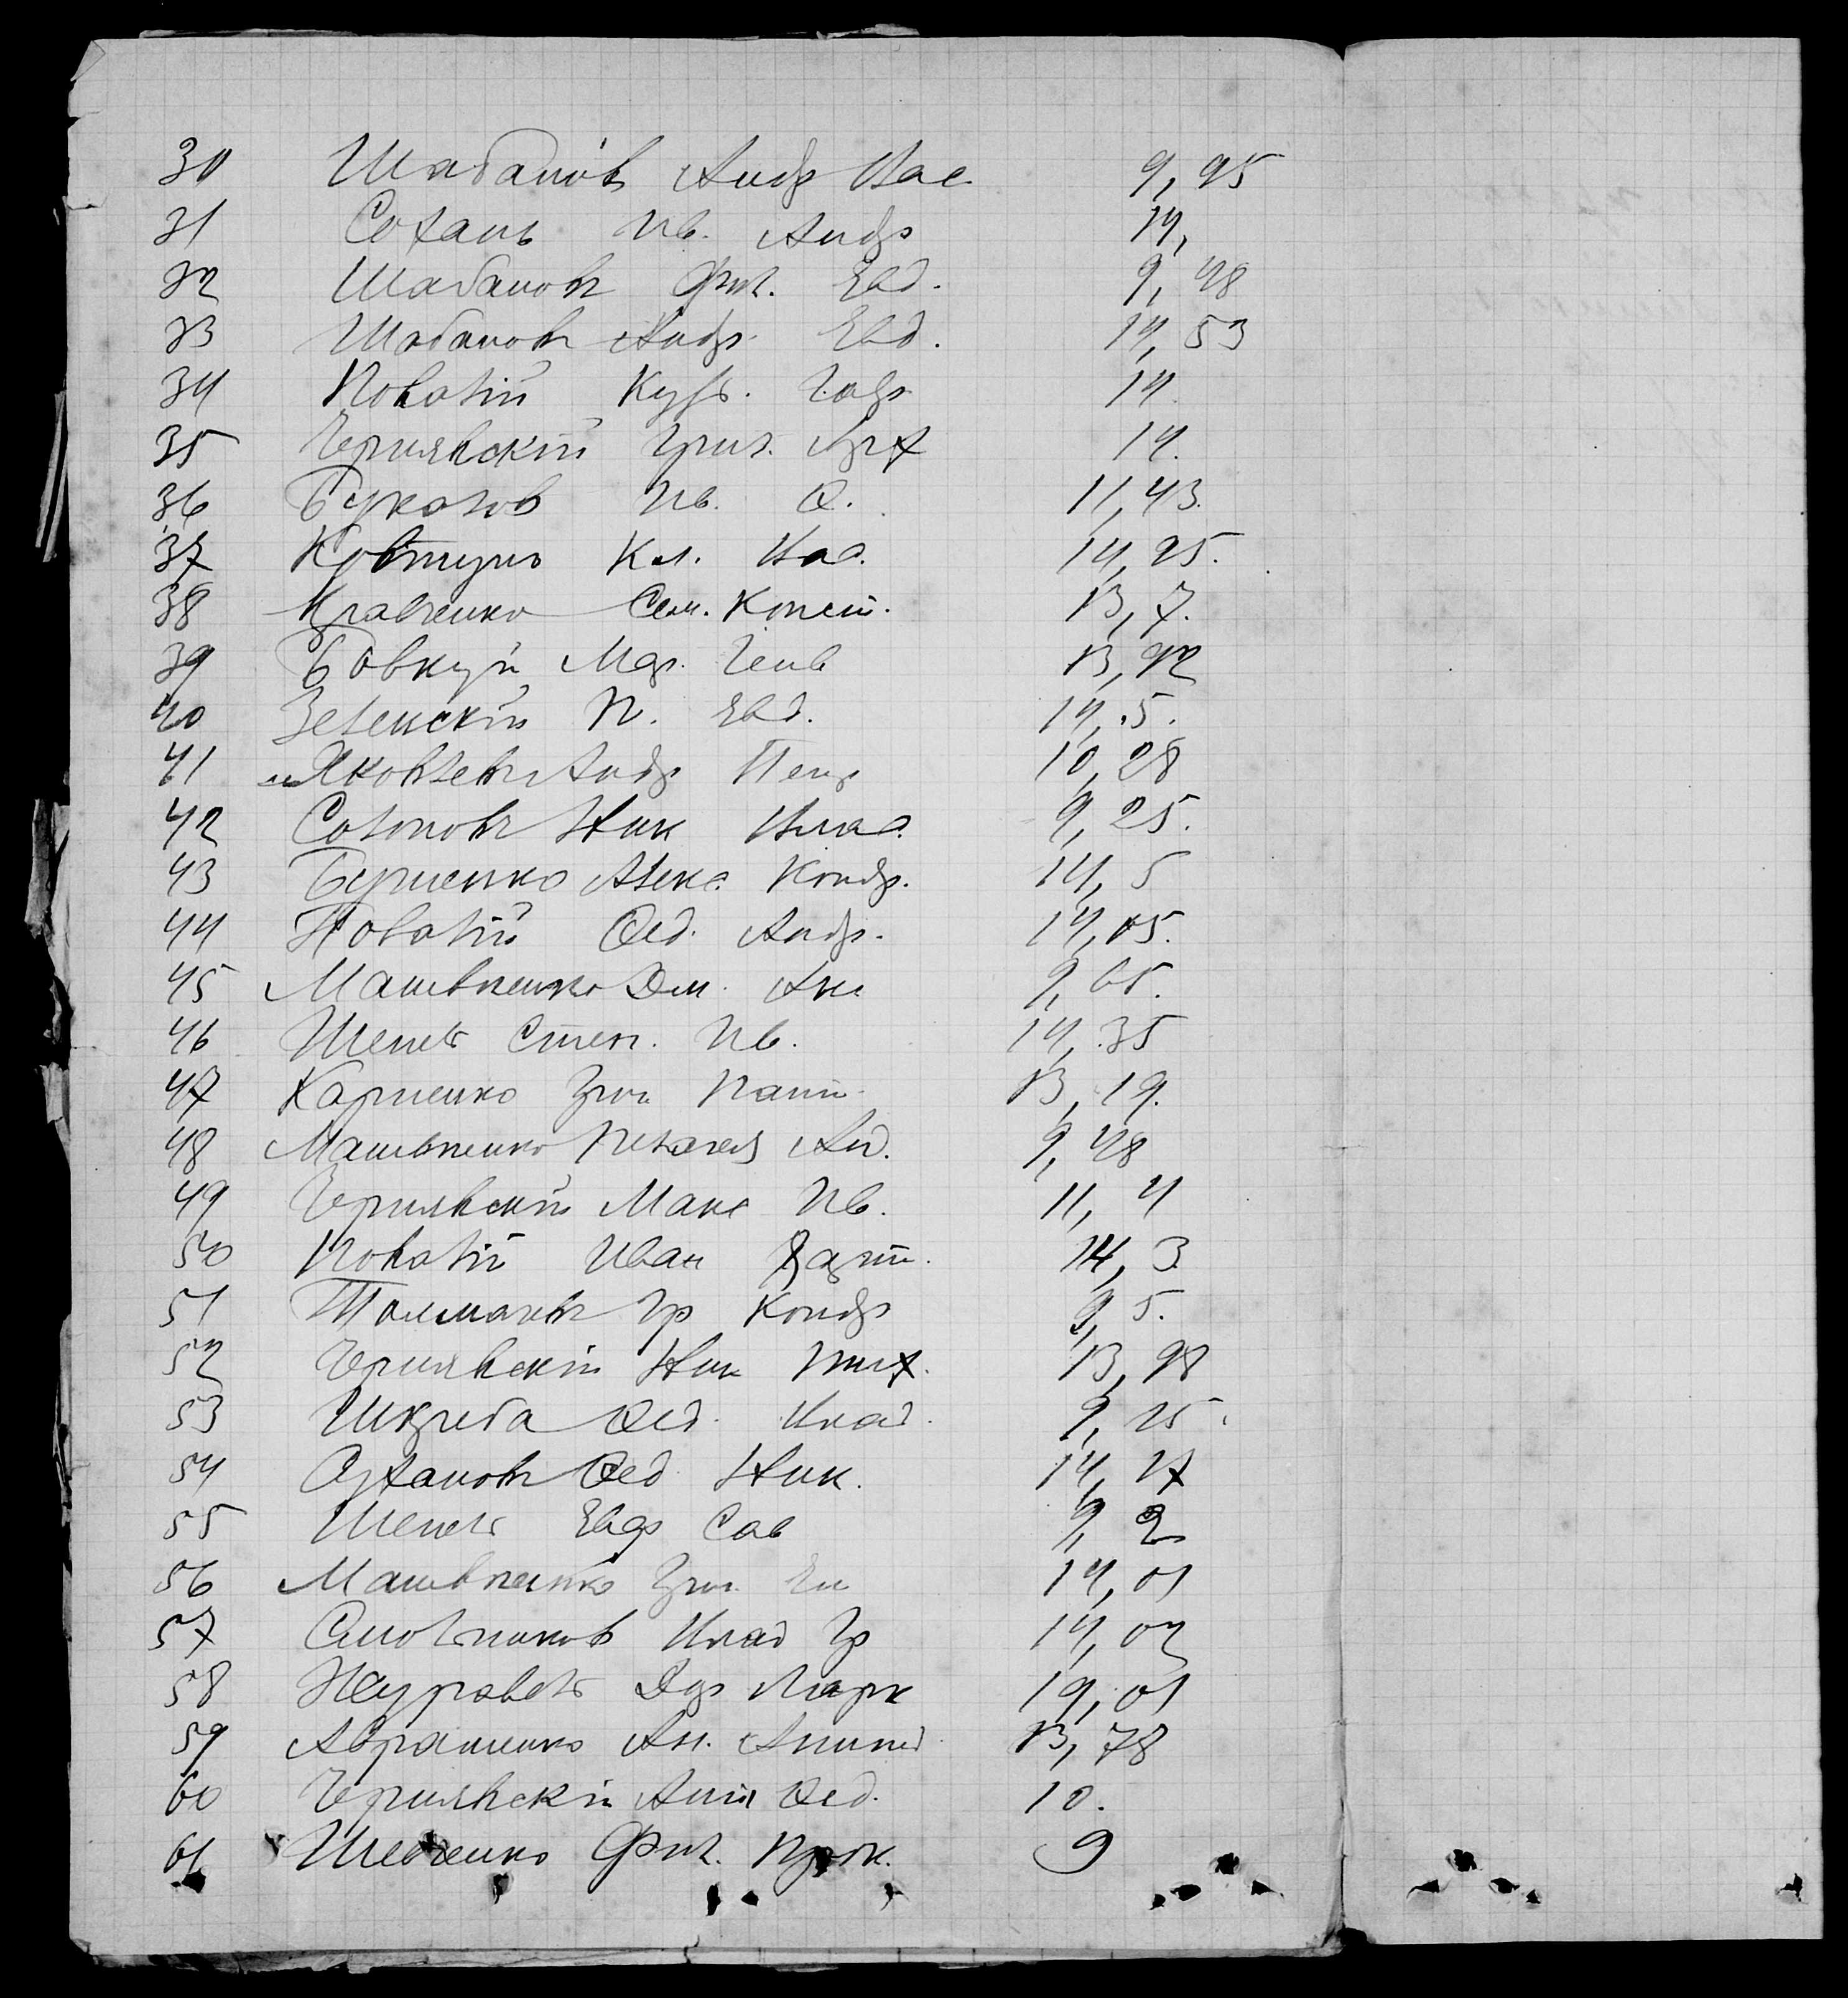 30 Шабановъ Андр Вас 9,95
31 Сохань Ив. Андр 14,
32 Шабановъ Фил. Евд. 9,48
33 Шабановъ Андр. Евд. 14,53
34 Коваlій Кузь. Гавр 14
35 Чернявскій Григ. Арх 14.
36 Ив. Ѳ. 11,43.
37 Ковтунъ Кл. Вас. 14,95.
38 Кравченко Сем. Конст. 13,7.
39 Бовкун 13,92
40 Зеленскій П. Евд. 14,5.
41 Яковлевъ Андр Петр 10,28
42 Солоповъ Ник Влас. 9,25.
43 Бурненко Алекс. Кондр. 14,5
44 Новалій Ѳед. Андр. 14,05.
45 Машевненко Дем. 9,65.
46 Шепель Степ. Ив. 14,35
47 Карпенко Григ Пант 13,19.
48 Машевненко 9,48
49 Чернявскій Макс Ив. 11,4
50 Ковалій Иван 14,3
51 Толмачевъ Гр Кондр 9,5.
52 Чернявскій Ник Тих. 13,98
53 Шкреба Ѳед. Влад. 9,25.
54 Сухановъ Ѳед Ник. 14,17
55 Шепель Евдр Сав 9,2
56 Машевненко Григ. Ем 14,01
57 Смольниковъ Влад Гр 14,02
58 Журавель Марк 14,01
59 Авраменко Ан. 13,78
60 Чернявскій Ѳед. 10.
61 Шевченко Фил. Прок. 9